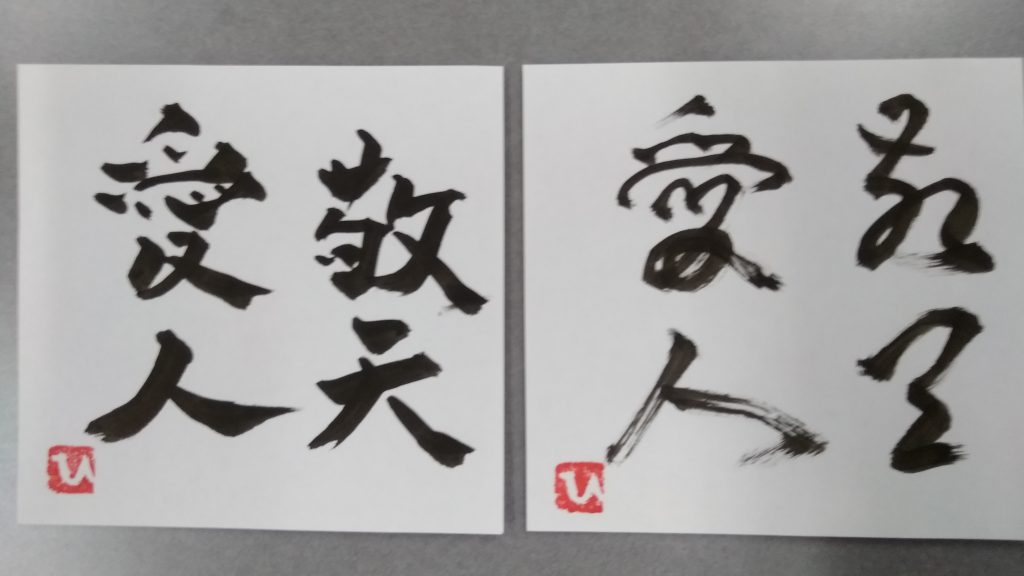 敬天
愛人
い
敬天
愛人
い